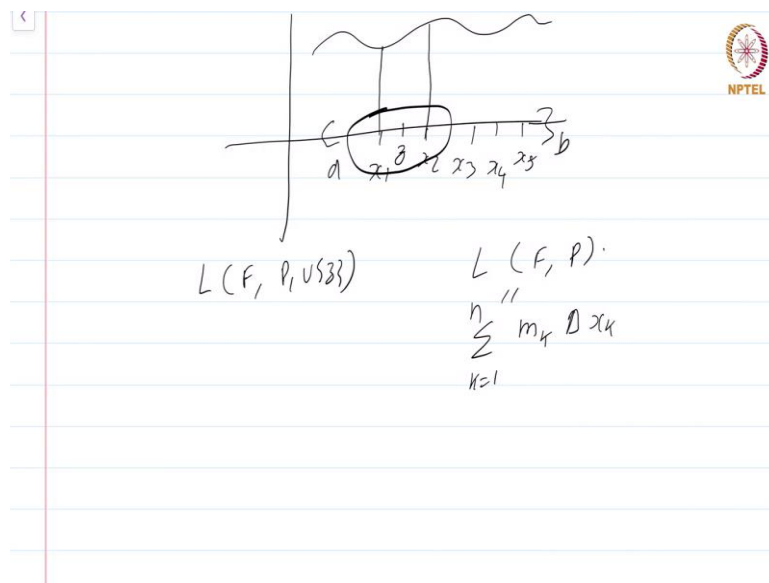 NPTEL
a x1 z x2 x3 x4 x5 b
L(F, P, U{z}) L (F, P).
n
Σ mk Δxk
k=1